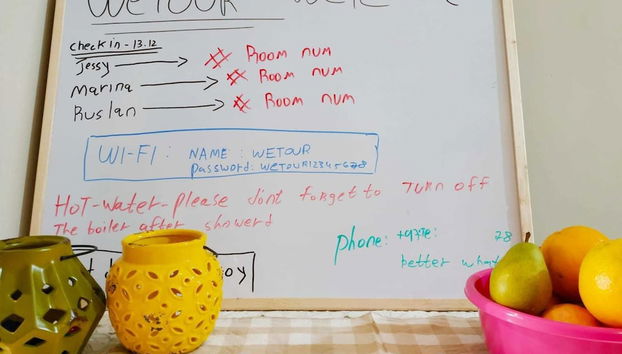 WETOUR
check in - 13.12
Jessy → ## Room num
marina → ## Room num
Ruslan → ## Room num
WI-FI: NAME: WETOUR
password: WETOUR12345678
HOT-water-please dont forget to turn off
The boiler after showerd
phone: 28
better what
oy